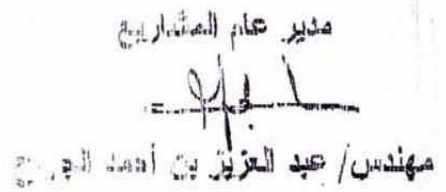 مدير عام المشاريع
مهندس/ عبد العزيز بن أحمد